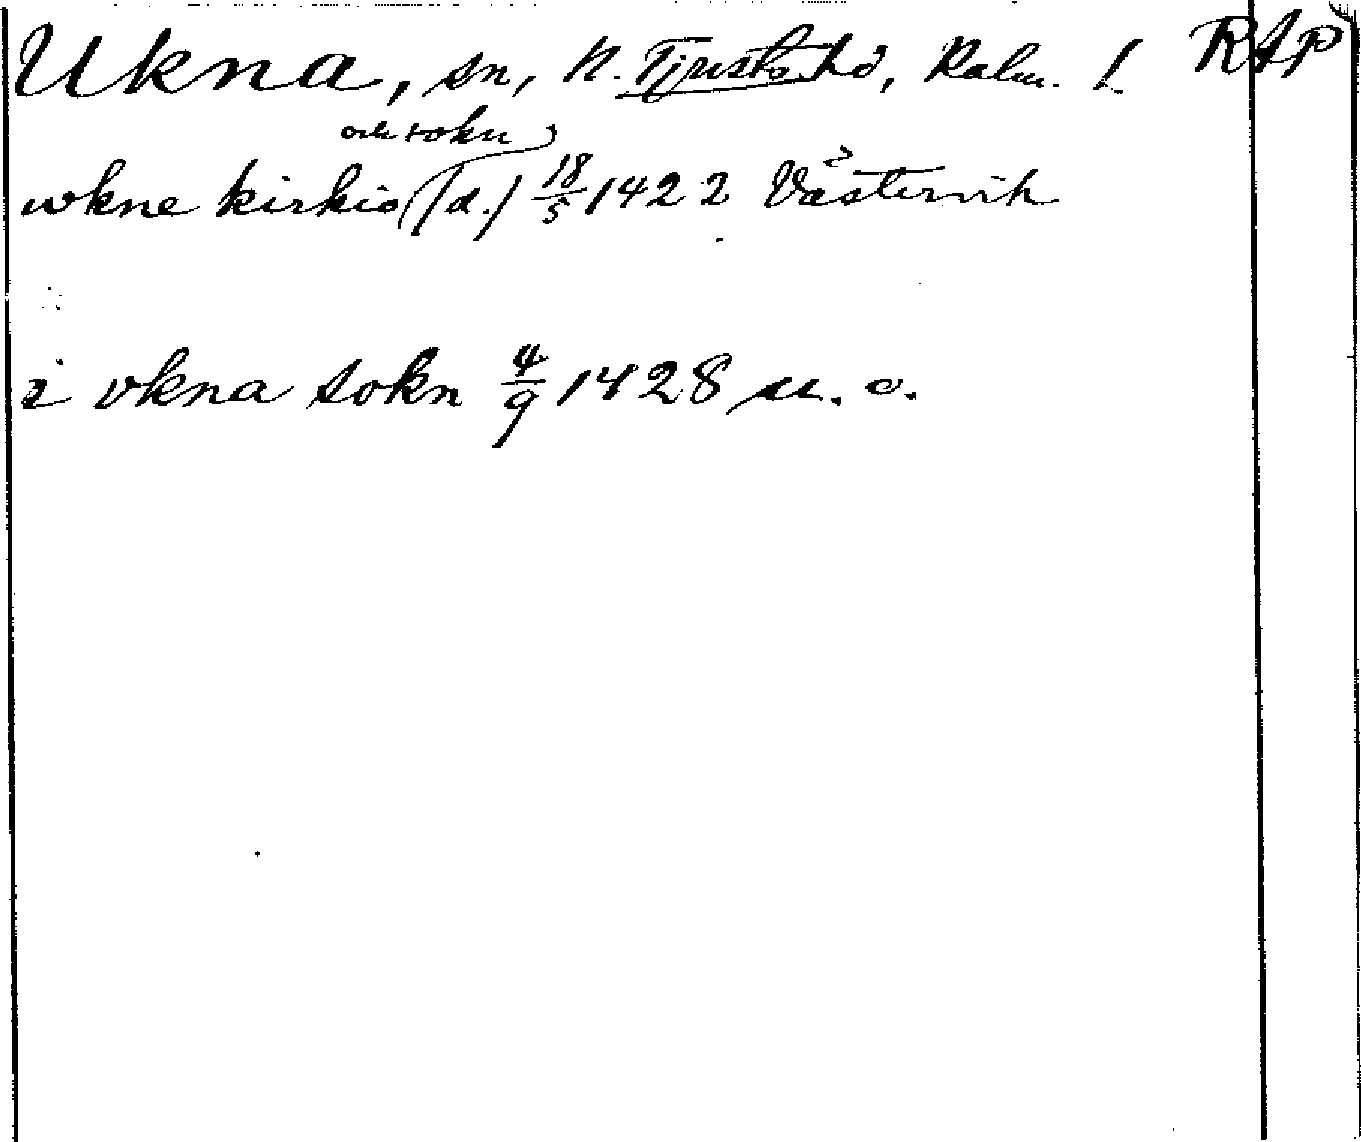 Ukna, sn, N. Tjusts hd, Kalm. l. RAP
och sokn
wkne kirkio (d.) 18/5 1422 Västervik
i vkna sokn 4/9 1428 u. o.